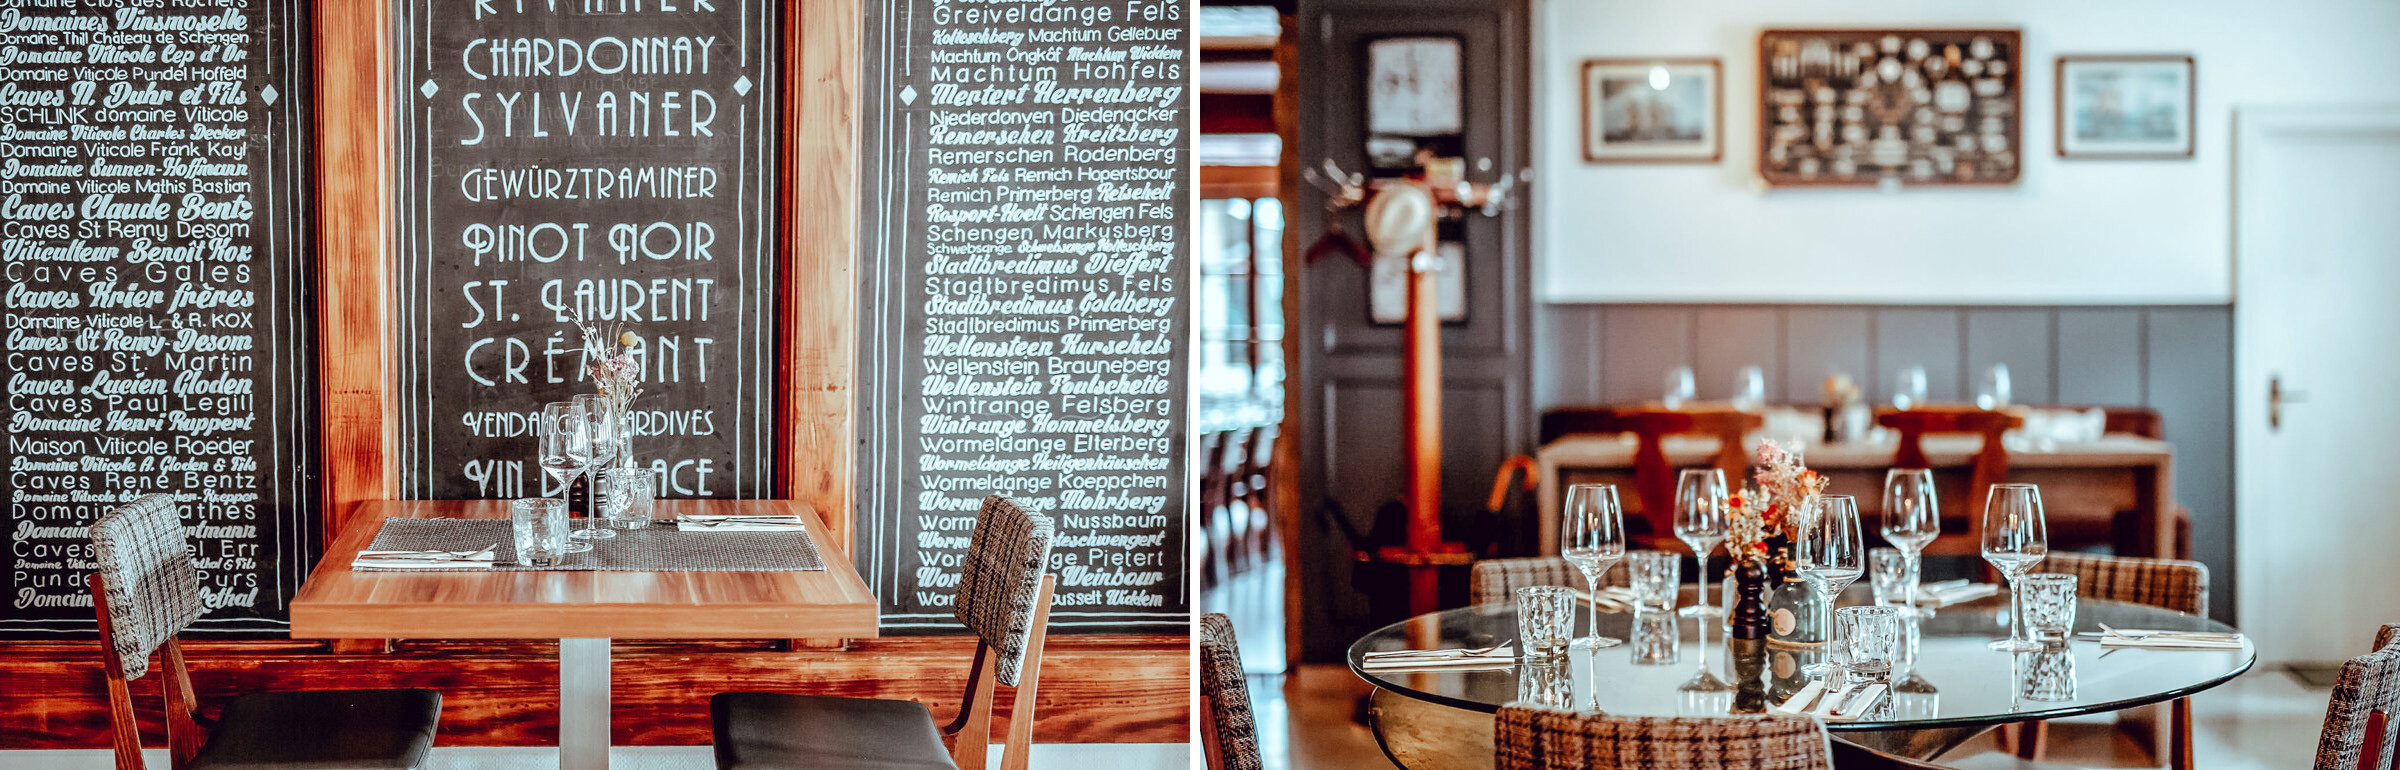 Domaine Clos des Rochers
Domaines Vinsmoselle
Domaine Thill Château de Schengen
Domaine Viticole Cep d'Or
Domaine Viticole Pundel Hoffeld
Caves N. Duhr et Fils
SCHLINK domaine Viticole
Domaine Viticole Charles Decker
Domaine Viticole Fränk Kayl
Domaine Sunnen-Hoffmann
Domaine Viticole Mathis Bastian
Caves Claude Bentz
Caves St Remy Desom
Viticulteur Benoît Kox
Caves Gales
Caves Krier frères
Domaine Viticole L. & R. KOX
Caves St Remy-Desom
Caves St. Martin
Caves Lucien Gloden
Caves Paul Legill
Domaine Henri Ruppert
Maison Viticole Roeder
Domaine Viticole A. Gloden & Fils
Caves René Bentz
Domaine Viticole
Caves
Err
Pyrs
RYVANER
CHARDONNAY
SYLVANER
GEWÜRZTRAMINER
PINOT NOIR
ST. LAURENT
CRÉMANT
VENDANGES TARDIVES
VIN
Greiveldange Fels
Kolteschberg Machtum Gellebuer
Machtum Ongkâf Machtum Widdem
Machtum Hohfels
Mertert Herrenberg
Niederdonven Diedenacker
Remerschen Kreitzberg
Remerschen Rodenberg
Remich Fels Remich Hopertsbour
Remich Primerberg Retschelt
Rosport-Hoelt Schengen Fels
Schengen Markusberg
Schwebsange Schwebsange Kolteschberg
Stadtbredimus Dieffert
Stadtbredimus Fels
Stadtbredimus Goldberg
Stadtbredimus Primerberg
Wellensteen Kurschels
Wellenstein Brauneberg
Wellenstein Foulschette
Wintrange Felsberg
Wintrange Hommelsberg
Wormeldange Elterberg
Wormeldange Heiligenhäuschen
Wormeldange Koeppchen
Wormeldange Mohrberg
Nussbaum
Pietert
Weinbour
Widdem